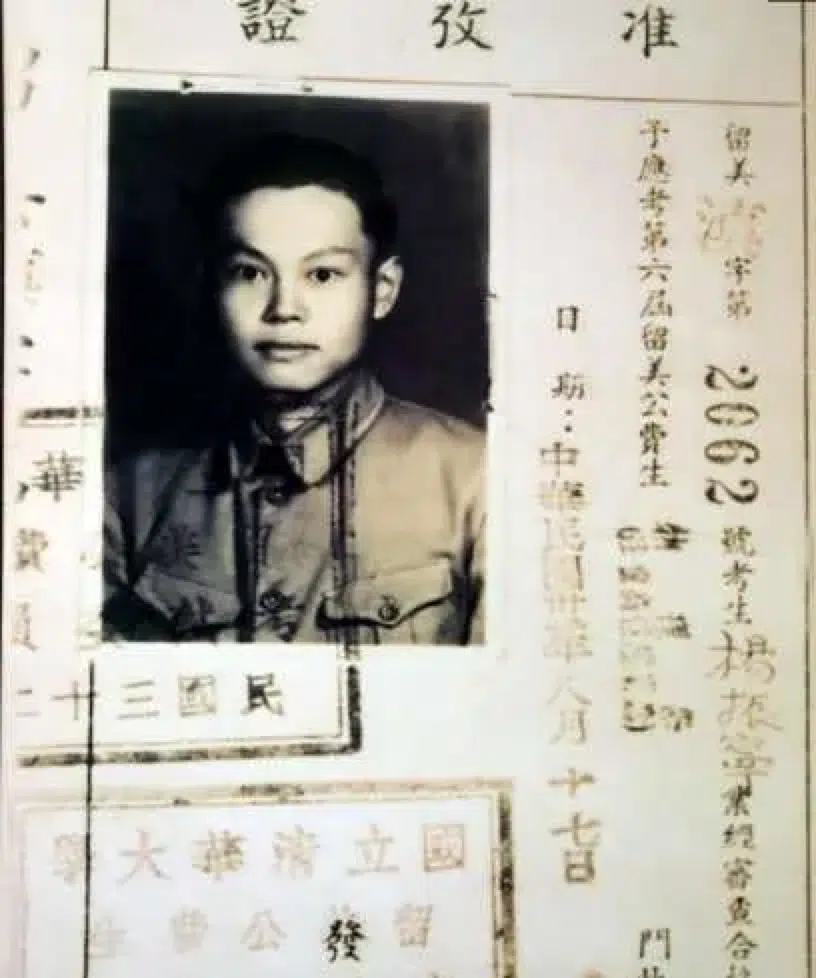 准攷證
留美字第2062號考生楊振寧業經審查合
予應考第六屆留美公費生
門
日期：中華民國卅二年八月十七日
華
費
民國三十二
國立清華大學
留美公費生
發